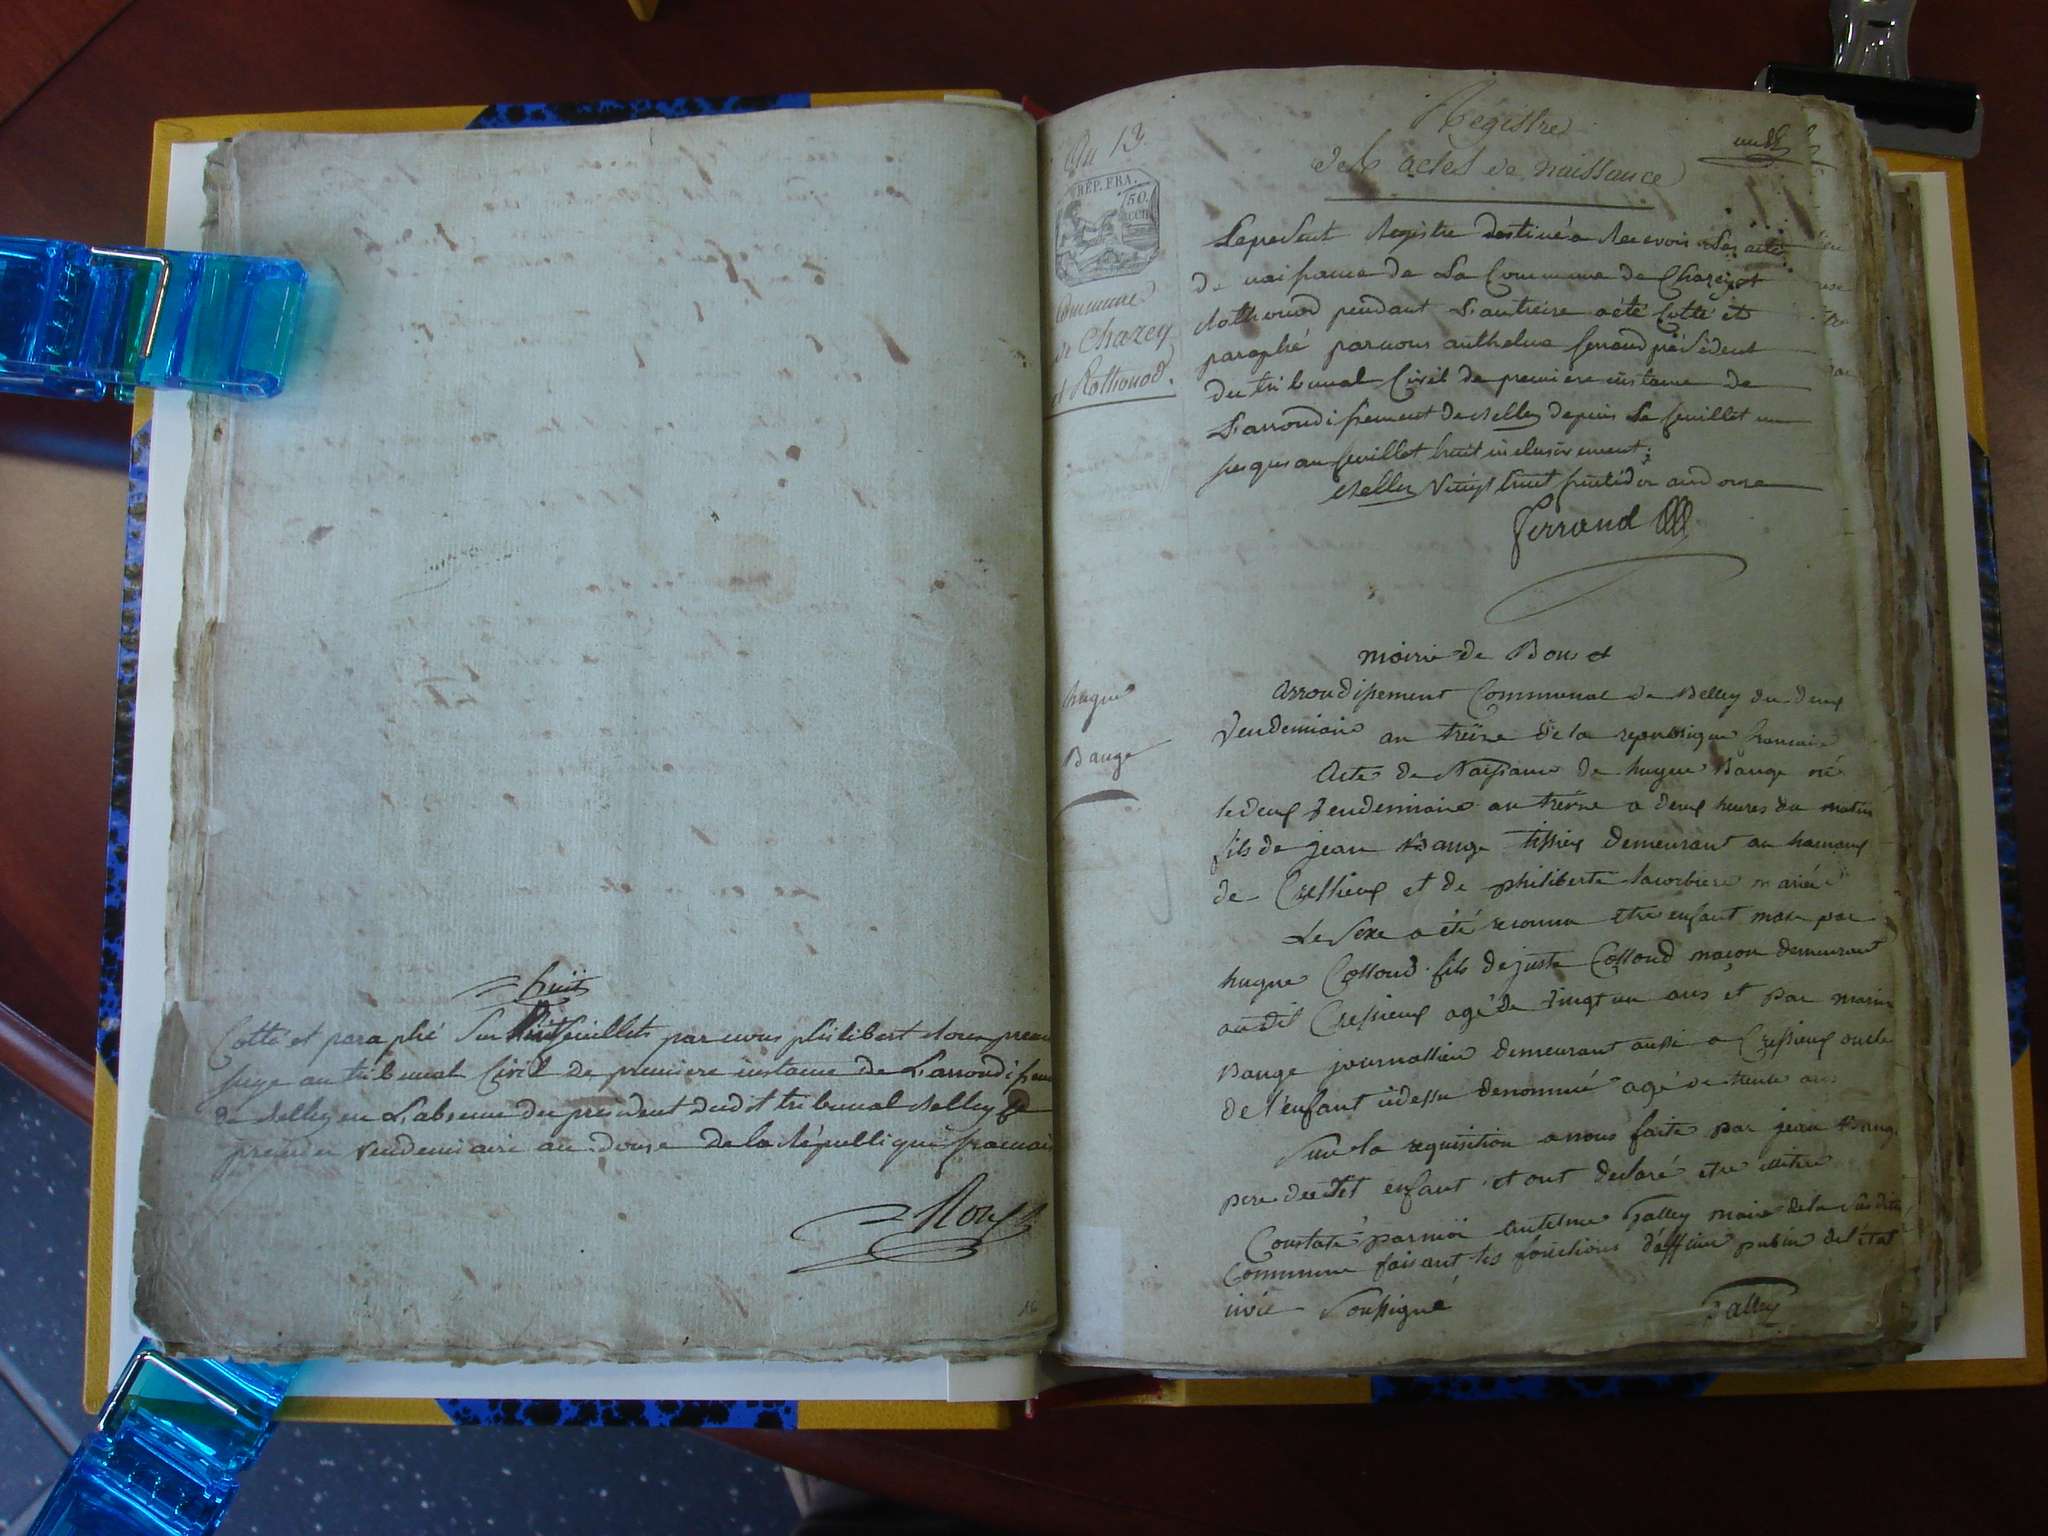 huit
Cotté et paraphé sur huit feuillets par nous philibert Roux premier
juge au tribunal Civil de première instance de L'arrondissem
de Belley en L'absence du president dudit tribunal Belley le
premier vendemiaire an douse de la République francaise
Roux
An 13.
RÉP. FRA.
50.
CCEN
Commune
de Chazey
et Rothonod.
Régistre
des actes de naissance
Le present Registre destiné a Recevoir Les actes
de naissance de La Commune de Chazey et
Rothonod pendant L'an treize a été Cotté et
paraphé par nous anthelme ferrand président
du tribunal Civil de premiere instance de
L'arrondissement de Belley depuis Le feuillet un
jusques au feuillet huit inclusivement;
Belley vingt huit fructidor an douse
Ferrand
mairie de Bons et
Arrondissement Communal de Belley du deux
Vendemiaire an treize de la republique francaise
hugue
Bauge
Acte de Naissance de hugue Bauge né
le deux Vendemiaire an treize a deux heures du matin
fils de jean Bauge tissier demeurant au hameau
de Cressieux et de philiberte lacorbiere mariée
Le sexe a été reconnu etre enfant male par
hugue Cossoud fils de juste Cossoud maçon demeurant
audit Cressieux agé de vingt un ans et par marin
Bauge journallier demeurant aussi a Cressieux oncle
de l'enfant cidessu denommé agé de trente ans
Sur la requisition a nous faite par jean Bauge
pere dudit enfant et ont declaré etre illitré
Constaté par moi Antelme Galley maire de la susdite
Commune faisant les fonctions d'officier public de l'état
civil Soussigné
Galley